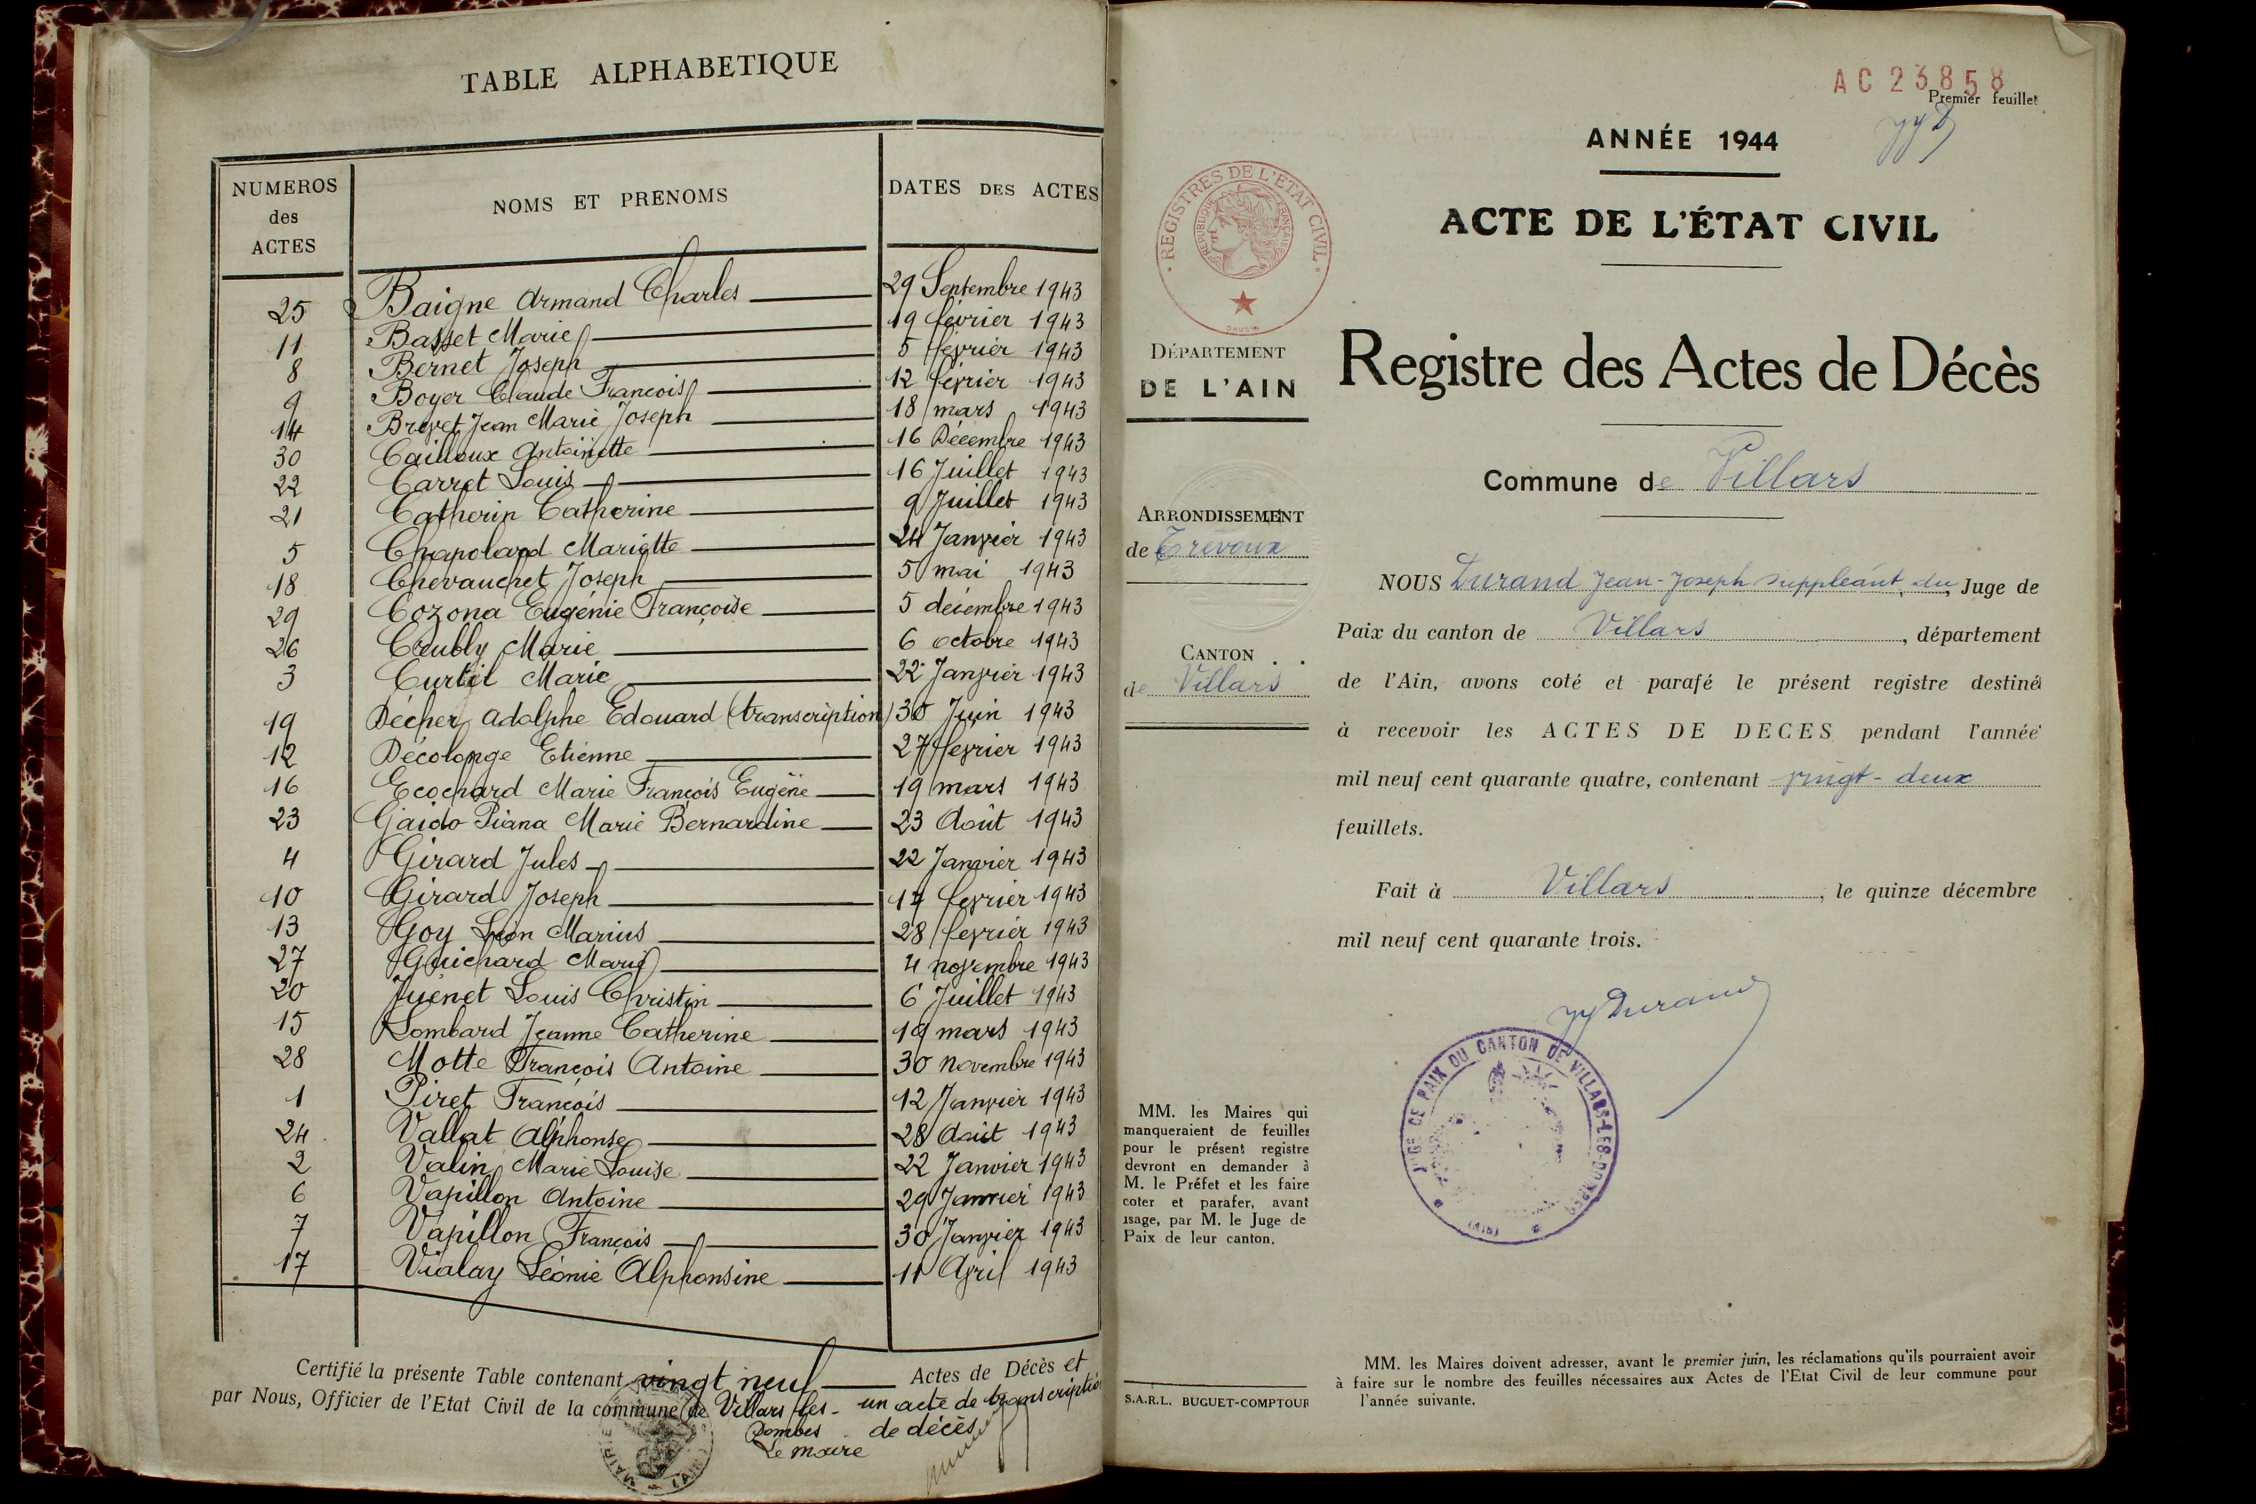 TABLE ALPHABETIQUE
NUMEROS
des
ACTES
NOMS ET PRENOMS
DATES DES ACTES
25 Baigne Armand Charles 29 Septembre 1943
11 Basset Marie 19 février 1943
8 Bernet Joseph 5 février 1943
9 Boyer Claude François 12 février 1943
14 Brevet Jean Marie Joseph 18 mars 1943
30 Cailloux Antoinette 16 Décembre 1943
22 Carret Louis 16 Juillet 1943
21 Catherin Catherine 9 Juillet 1943
5 Chapoland Mariette 24 Janvier 1943
18 Chevauchet Joseph 5 mai 1943
29 Cozona Eugénie Françoise 5 décembre 1943
26 Crubly Marie 6 octobre 1943
3 Curtil Marie 22 Janvier 1943
19 Décher Adolphe Edouard (transcription) 30 Juin 1943
12 Décolonge Etienne 27 fevrier 1943
16 Ecochard Marie François Eugène 19 mars 1943
23 Gaido Piana Marie Bernardine 23 Août 1943
4 Girard Jules 22 Janvier 1943
10 Girard Joseph 17 fevrier 1943
13 Goy Léon Marius 28 fevrier 1943
27 Guichard Marie 4 novembre 1943
20 Juenet Louis Christin 6 Juillet 1943
15 Lombard Jeanne Catherine 19 mars 1943
28 Motte François Antoine 30 novembre 1943
1 Piret François 12 Janvier 1943
24 Vallat Alphonse 28 Août 1943
2 Valin Marie Louise 22 Janvier 1943
6 Vapillon Antoine 29 Janvier 1943
7 Vapillon François 30 Janvier 1943
17 Vialay Léonie Alphonsine 11 Avril 1943
Certifié la présente Table contenant vingt neuf Actes de Décès et
par Nous, Officier de l'Etat Civil de la commune de Villars les- un acte de transcription
Dombes de décès
Le maire
MAIRIE
(AIN)
AC 23858
Premier feuillet
ANNÉE 1944
ACTE DE L'ÉTAT CIVIL
REGISTRES DE L'ETAT CIVIL
REPUBLIQUE FRANÇAISE
DÉPARTEMENT
DE L'AIN
ARRONDISSEMENT
de Trévoux
CANTON
de Villars
MM. les Maires qui
manqueraient de feuilles
pour le présent registre
devront en demander à
M. le Préfet et les faire
coter et parafer, avant
usage, par M. le Juge de
Paix de leur canton.
S.A.R.L. BUGUET-COMPTOUR
Registre des Actes de Décès
Commune de Villars
NOUS Durand Jean-Joseph suppléant du, Juge de
Paix du canton de Villars, département
de l'Ain, avons coté et parafé le présent registre destiné
à recevoir les ACTES DE DECES pendant l'année
mil neuf cent quarante quatre, contenant vingt-deux
feuillets.
Fait à Villars, le quinze décembre
mil neuf cent quarante trois.
JJ Durand
JUGE DE PAIX DU CANTON DE VILLARS-LES-DOMBES
(AIN)
MM. les Maires doivent adresser, avant le premier juin, les réclamations qu'ils pourraient avoir
à faire sur le nombre des feuilles nécessaires aux Actes de l'Etat Civil de leur commune pour
l'année suivante.